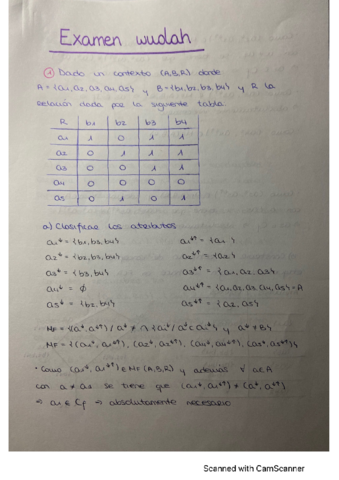 Examen wuolah
① Dado un contexto (A,B,R) donde
A = {a1, a2, a3, a4, a5} y B = {b1, b2, b3, b4} y R la
relación dada por la siguiente tabla
R b1 b2 b3 b4
a1 1 0 1 1
a2 0 1 1 1
a3 0 0 1 1
a4 0 0 0 0
a5 0 1 0 1
a) Clasificar los atributos
a1↓ = {b1, b3, b4} a1↓↑ = {a1}
a2↓ = {b2, b3, b4} a2↓↑ = {a2}
a3↓ = {b3, b4} a3↓↑ = {a1, a2, a3}
a4↓ = ∅ a4↓↑ = {a1, a2, a3, a4, a5} = A
a5↓ = {b2, b4} a5↓↑ = {a2, a5}
MF = {(a1↓, a1↓↑), (a2↓, a2↓↑), (a4↓, a4↓↑), (a5↓, a5↓↑)}
· Como (a1↓, a1↓↑) ∈ MF (A,B,R) y además ∀ a∈A
con a ≠ a1 se tiene que (a1↓, a1↓↑) ≠ (a↓, a↓↑)
⇒ a1 ∈ Cf ⇒ absolutamente necesario
Scanned with CamScanner